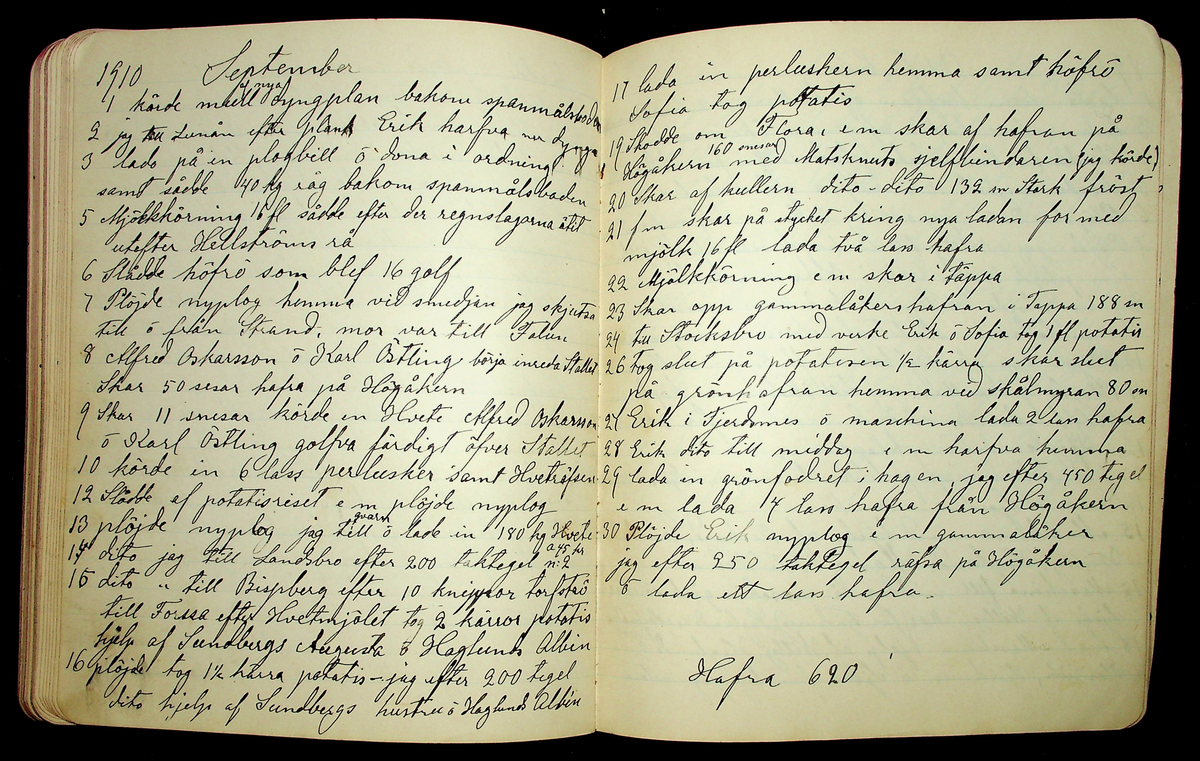 1910 September
1 körde mull nya dyngplan bakom spanmålsboden
2 jag till Lunån efter plank Erik harfva ner dynga
3 lado på en plogbill ö dona i ordning
samt sådde 40 kg råg bakom spanmålsboden
5 Mjölkkörning 16 fl sådde efter der regnslagorna åtit
utefter Hellströms rå
6 Städde höfrö som blef 16 golf
7 Plöjde nyplog hemma vid smedjan jag skjutsa
till ö från Strand, mor var till Falun
8 Alfred Oskarsson ö Karl Östling börja inreda Stallet
Skar 50 sesar hafra på Högåkern
9 Skar 11 snesar körde in Hvete Alfred Oskarsson
ö Karl Östling golfva färdigt öfver Stallet
10 körde in 6 lass perlusker samt Hveträfsen
12 Städde af potatisriset e m plöjde nyplog
13 plöjde nyplog jag till qvarn ö lade in 180 kg Hvete
a 45 kr
14 dito jag till Landsbro efter 200 taktegel n: 2
15 dito " till Bispberg efter 10 knippor torfströ
till Forssa efter Hvetmjölet tog 2 kärror potatis
hjelp af Sundbergs Augusta ö Haglunds Albin
16 plöjde tog 1½ kärra potatis – jag efter 200 tegel
dito hjelp af Sundbergs hustru ö Haglunds Albin
17 lada in perluskern hemma samt höfrö
Sofia tog potatis
19 Skodde om Flora, e m skar af hafran på
Högåkern 160 snesar med Matsknuts sjelfbindaren (jag körde)
20 Skar af kullern dito - dito 132 sn Stark fröst
21 f m skar på stycket kring nya ladan for med
mjölk 16 fl lada två lass hafra
22 Mjölkkörning e m skar i Täppa
23 Skar opp gammalåkershafran i Täppa 188 sn
24 till Stocksbro med virke Erik ö Sofia tog 1 fl potatis
26 tog slut på potatisen ½ kärra skar slut
på grönhafran hemma ved skålmyran 80 sn
27 Erik i Tjerdsnes ö maschina lada 2 lass hafra
28 Erik dito till middag e m harfva hemma
29 lada in grönfodret i hagen, jag efter 450 tegel
e m lada 4 lass hafra från Högåkern
30 Plöjde Erik nyplog e m gammalåker
jag efter 250 taktegel räfsa på Högåkern
ö lada ett lass hafra.
Hafra 620